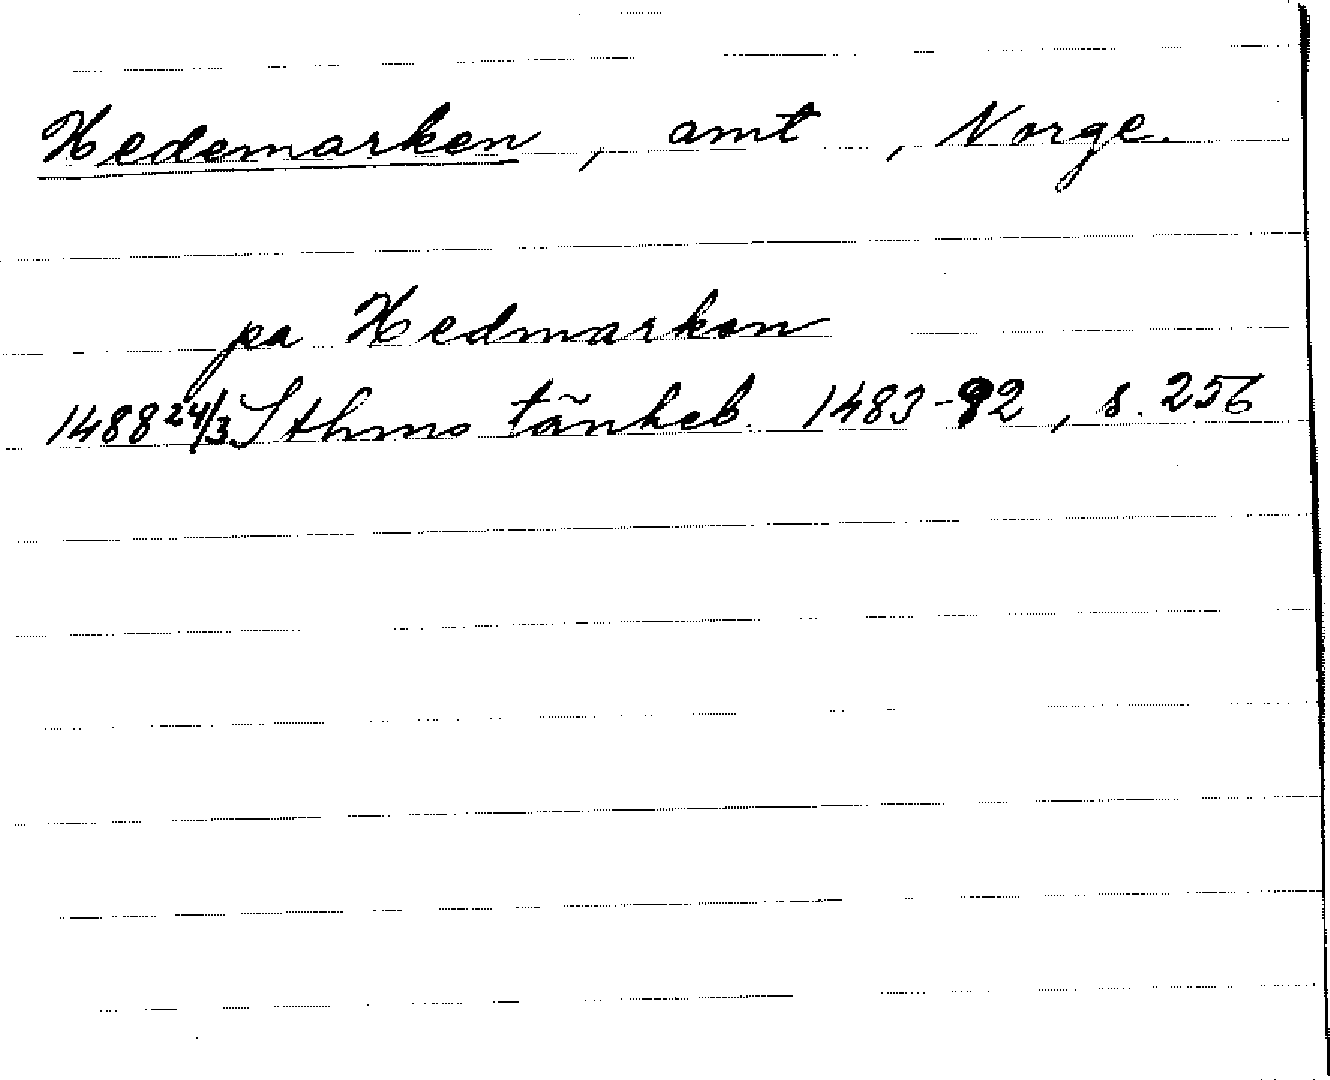 Hedemarken, amt, Norge.
pa Hedmarkon
1488 24/3 Sthms tänkeb. 1483-92, s. 256